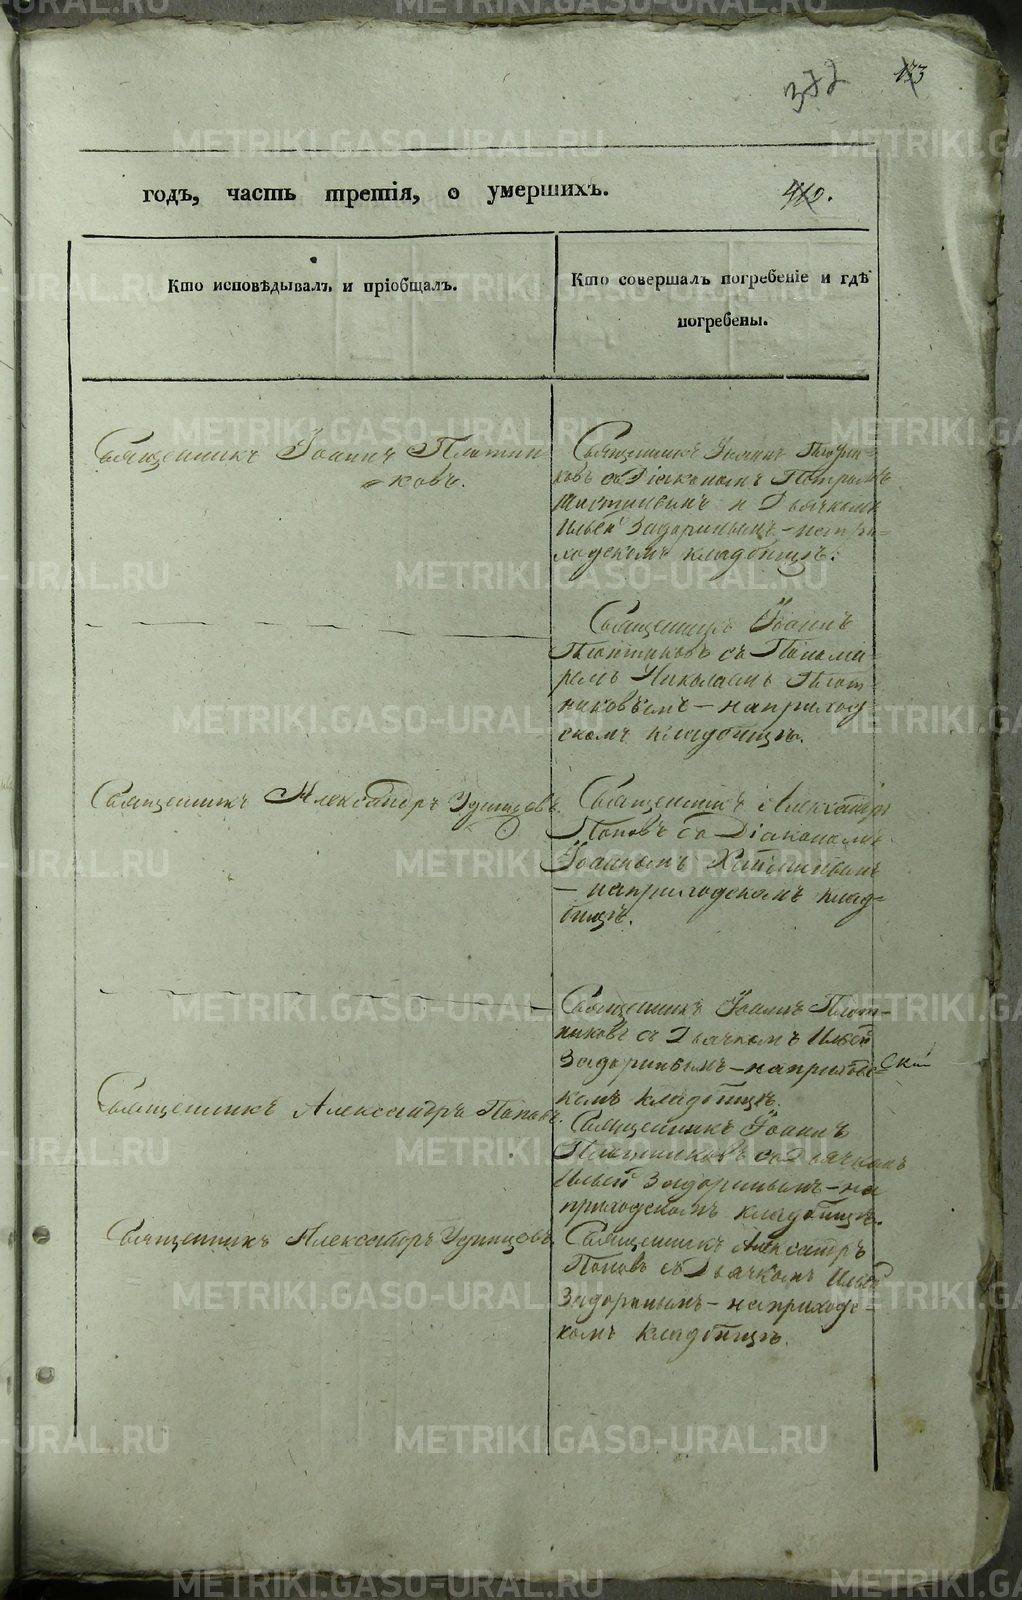 372
133
годъ, часть третія, о умершихъ.
Кто исповѣдывалъ и пріобщалъ.
Кто совершалъ погребеніе и гдѣ
погребены.
Священникъ Іоаннъ Плотни-
ковъ.
Священникъ Іоаннъ Плотни-
ковъ со Діакономъ Петромъ
и Дьячкомъ
Ильей Задоринымъ – на при-
ходскомъ кладбищѣ.
Священникъ Іоаннъ
Плотниковъ съ Понома-
ремъ Николаемъ Плот-
никовымъ – на приход-
скомъ кладбищѣ.
Священникъ Александръ Удинцовъ.
Священникъ Александръ
Поповъ со Діакономъ
Іоанномъ
– на приходскомъ клад-
бищѣ.
Священникъ Іоаннъ Плот-
никовъ съ Дьячкомъ Ильей
Задоринымъ – на приходс-
комъ кладбищѣ.
Священникъ Александръ Поповъ.
Священникъ Іоаннъ
Плотниковъ съ Дьячкомъ
Ильей Задоринымъ – на
приходскомъ кладбищѣ.
Священникъ Александръ Удинцовъ.
Священникъ Александръ
Поповъ съ Дьячкомъ Ильей
Задоринымъ – на приходс-
комъ кладбищѣ.
METRIKI.GASO-URAL.RU